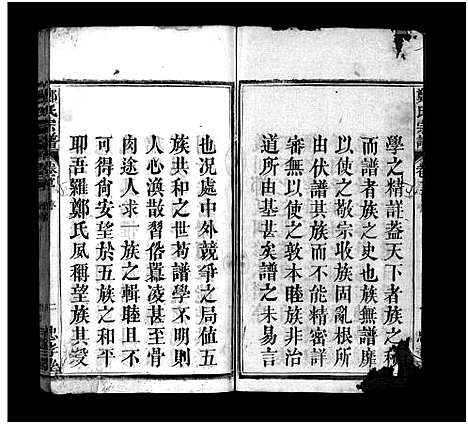 學之精詳蓋天下者族之積
而譜者族之史也族無譜靡
以使之敬宗收族固亂根所
由伏譜其族而不能精密詳
審無以使之敦本睦族非治
道所由基甚矣譜之未易言
也況處中外競爭之局值五
族共和之世苟譜學不明則
人心渙散習俗囂凌甚至骨
肉途人求一族之輯睦且不
可得尚安望於五族之和平
耶吾羅鄭氏夙稱望族其爰
鄭氏宗譜
鄭氏宗譜